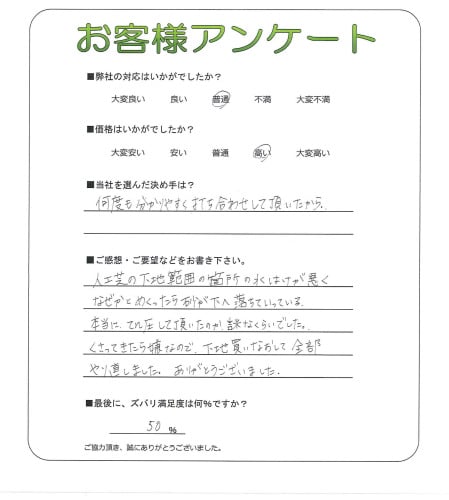 お客様アンケート
■弊社の対応はいかがでしたか？
大変良い　良い　普通　不満　大変不満
■価格はいかがでしたか？
大変安い　安い　普通　高い　大変高い
■当社を選んだ決め手は？
何度も分かりやすく打ち合わせして頂いたから。
■ご感想・ご要望などをお書き下さい。
人工芝の下地範囲の箇所の水はけが悪く
なぜかとめくったら が下へ落ちていっている。
本当に、 して頂いたのか なくらいでした。
くさってきたら嫌なので、下地買いなおして全部
やり直しました。ありがとうございました。
■最後に、ズバリ満足度は何%ですか？
50 %
ご協力頂き、誠にありがとうございました。